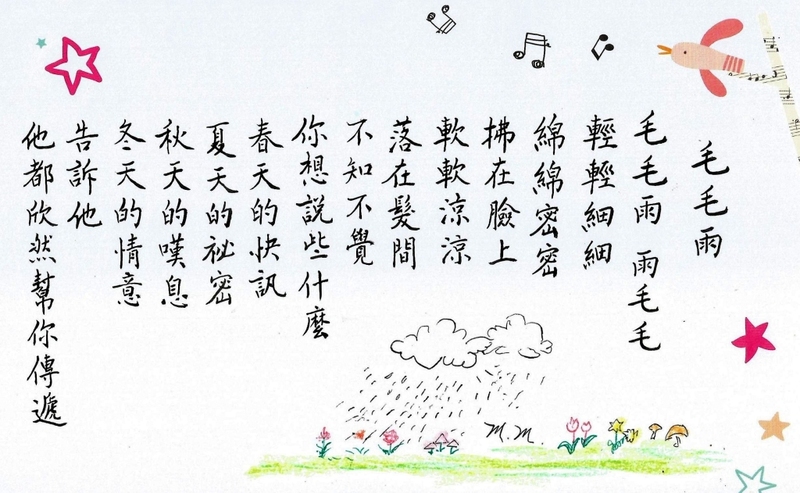 毛毛雨
毛毛雨 雨毛毛
輕輕細細
綿綿密密
拂在臉上
軟軟涼涼
落在髮間
不知不覺
你想說些什麼
春天的快訊
夏天的祕密
秋天的嘆息
冬天的情意
告訴他
他都欣然幫你傳遞
M.M.